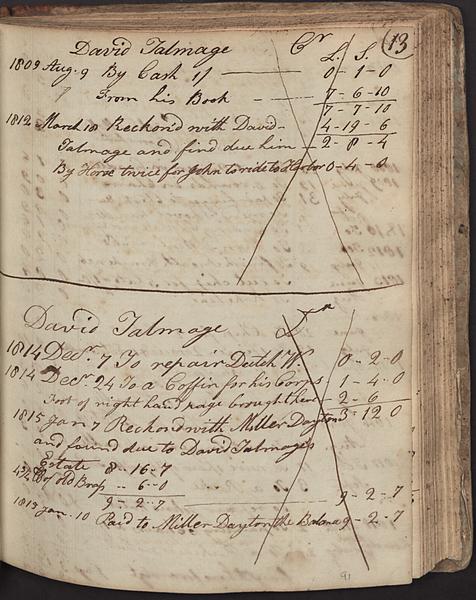 13
David Talmage Cr
L. S.
1809 Aug. 9 By Cash 1/ 0-1-0
From his Book 7-6-10
7-7-10
1812 March 18 Reckon'd with David 4-19-6
Talmage and find due him 2-8-4
By Horse twice for John to ride to Harbor 0-4-0
David Talmage Dr
1814 Decr. 7 To repair Dutch W 0-2-0
1814 Decr 24 To a Coffin for his Corps 1-4-0
Foot of right hand page brought here 2-6
3-12 0
1815 Jan 7 Reckon'd with Miller Dayton
and found due to David Talmages
Estate 8-16-7
of old Brass 6-0
9-2-7 9-2-7
Jan. 10 Paid to Miller Dayton the Balance 9-2-7
91